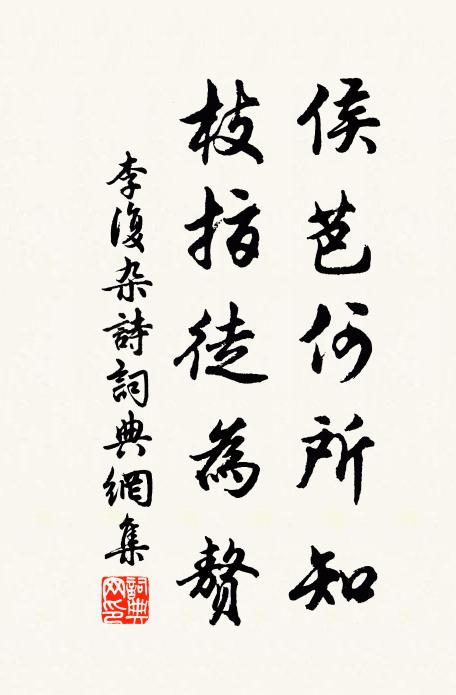 侯芭何所知
枝指徒為贅
李復杂詩詞典網集
詞典网印